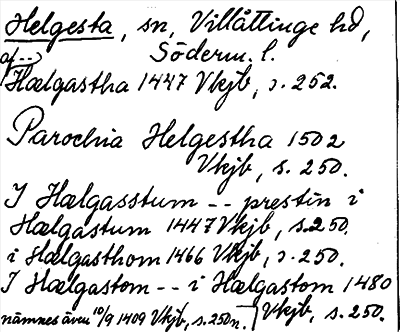 Helgesta, sn, Villåttinge hd,
Söderm. l.
af --
Hælgastha 1447 Vkjb, s. 252.
Parochia Helgestha 1502
Vkjb, s. 250.
I Hælgasstum -- prestin i
Hælgastum 1447 Vkjb, s. 250.
i Hælgasthom 1466 Vkjb, s. 250.
I Hælgastom -- i Hælgastom 1480
nämnes även 10/9 1409 Vkjb, s. 250 n. Vkjb, s. 250.